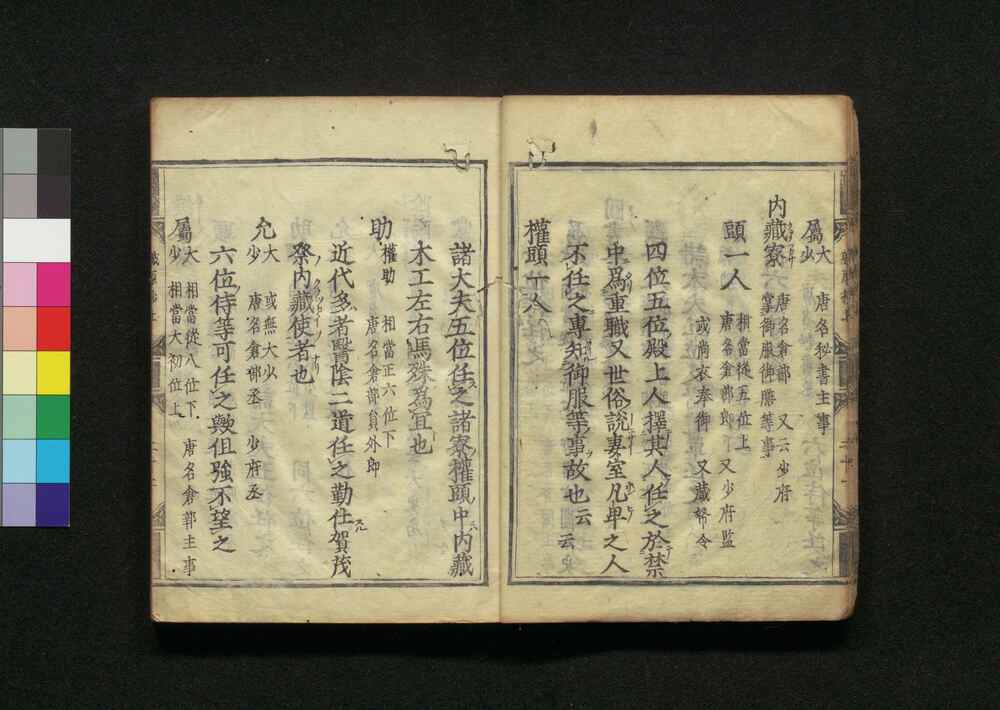 屬大少 唐名秘書主事
内藏寮 唐名倉部 又云少府
掌御服御膳等事
頭一人 相當從五位上
唐名倉部郎下 又少府監
或尚衣奉御 又藏帑令
四位五位殿上人擇其人任之於禁
中爲重職又世俗説妻室凡卑之人
不任之専知御服等事故也云云
權頭一人
諸大夫五位任之諸寮權頭中内藏
木工左右馬殊為宜也
助權助 相當正六位下
唐名倉部員外郎
近代多者醫陰二道任之勤仕賀茂
祭内藏使者也
允大少 或無大少
唐名倉部丞 少府丞
六位侍等可任之歟但強不望之
屬大少 相當從八位下
相當大初位上 唐名倉部主事